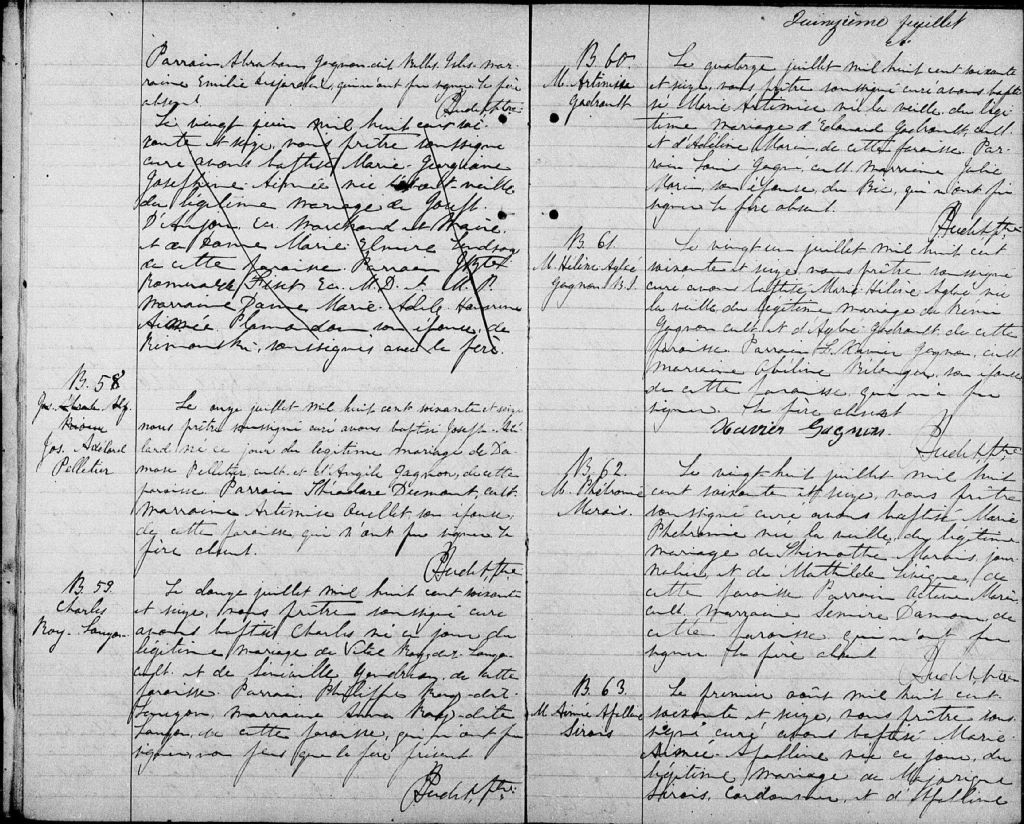 Parrain Abraham Gagnon dit Belles Isles. mar-
raine Emilie qui n'ont pu signer le père
absent
Le vingt juin mil huit cent soi
xante et seize, nous prêtre soussigné
curé avons baptisé Marie Georgianne
Josephine Aimée née l'avant-veille
du légitime mariage de Joseph
D'Anjou Ecr. Marchand et Maire
et de Dame Marie Elmire
de cette paroisse. Parrain
Romuald Fiset Ecr. M.D. et M.P.
marraine Dame Marie Adèle
Aimée Plamondon son épouse, de
Rimouski, soussignés avec le père.
B. 58
Jos. Adélard
Pelletier
Le onze juillet mil huit cent soixante et seize
nous prêtre soussigné curé avons baptisé Joseph Adé
lard né ce jour du légitime mariage de Da
mase Pelletier cult. et d'Angèle Gagnon, de cette
paroisse Parrain Théodore Dumont, cult.
marraine Artémise Ouellet son épouse,
de cette paroisse, qui n'ont pu signer le
père absent.
B. 59
Charles
Roy. Lauzon
Le douze juillet mil huit cent soixante
et seize, nous prêtre soussigné curé
avons baptisé Charles né ce jour du
légitime mariage de Vital Roy dit Lauzon
cult. et de Gendreau de cette
paroisse. Parrain Philippe Roy dit
Lauzon, marraine Anna Roy dite
Lauzon, de cette paroisse, qui n'ont pu
signer, non plus que le père présent
Quinzième feuillet
B 60
M. Artémise
Gadreault
Le quatorze juillet mil huit cent soixante
et seize, nous prêtre soussigné curé avons bapti
sé Marie Artémise née la veille du légi
time mariage d'Edouard Gadreault, cult.
et d'Adéline Marin, de cette paroisse Par
rain Louis Gagné, cult. marraine Julie
Marin, son épouse, du Bic, qui n'ont pu
signer le père absent.
B. 61.
M. Hélène Aglaé
Gagnon B.I.
Le vingt un juillet mil huit cent
soixante et seize, nous prêtre soussigné
curé avons baptisé Marie Hélène Aglaé née
la veille du légitime mariage de Rémi
Gagnon cult. et d'Aglaé Gadreault de cette
paroisse Parrain F. Xavier Gagnon, cult.
marraine Obéline Bélanger, son épouse
de cette paroisse, qui n'a pu
signer. Le père absent
Xavier Gagnon
B. 62
M. Phébronie
Marois.
Le vingt-huit juillet mil huit
cent soixante et seize, nous prêtre
soussigné curé avons baptisé Marie
Phébronie née la veille du légitime
mariage de Thimothe Marois, jour
nalier, et de Mathilde de
cette paroisse Parrain Octave Marin
cult. marraine Damon, de
cette paroisse qui n'ont pu
signer le père absent
B. 63.
M Aimée Apolline
Sirois
Le premier août mil huit cent
soixante et seize, nous prêtre sous
signé curé avons baptisé Marie
Aimée Apolline née ce jour, du
légitime mariage de Majorique
Sirois, Cordonnier, et d'Apolline